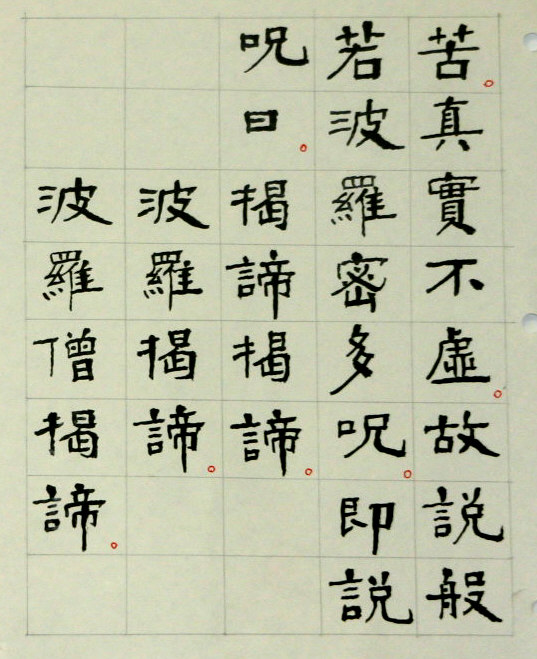 苦。真實不虛。故説般
若波羅密多呪。即説
呪曰。揭諦揭諦。
波羅揭諦。
波羅僧揭諦。